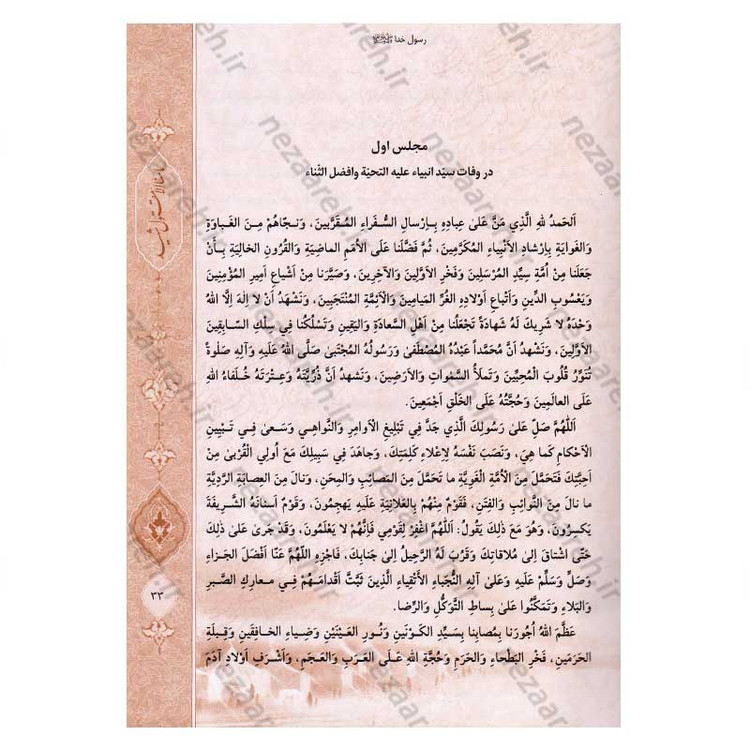 رسول خدا ﷺ
مجلس اول
در وفات سیّد انبیاء علیه التحیّة وافضل الثّناء
اَلحَمدُ لِلهِ الَّذِي مَنَّ عَلىٰ عِبادِهِ بِإرسالِ السُّفَراءِ المُقَرَّبينَ، وَنَجّاهُمْ مِنَ الغَباوَةِ
وَالغَوايَةِ بِإرشادِ الأَنْبِياءِ المُكَرَّمينَ، ثُمَّ فَضَّلَنا عَلَى الأُمَمِ الماضِيَةِ وَالقُرُونِ الخالِيَةِ بِأنْ
جَعَلَنا مِنْ اُمَّةِ سَيِّدِ المُرْسَلينَ وَفَخْرِ الاَوَّلينَ وَالآخِرينَ، وَصَيَّرَنا مِنْ اَشْياعِ اَميرِ المُؤْمِنينَ
وَيَعْسُوبِ الدِّينِ وَاَتْباعِ اَوْلادِهِ الغُرِّ المَيامينِ وَالاَئِمَّةِ المُنْتَجَبينَ، وَنَشْهَدُ اَنْ لا اِلهَ اِلَّا اللهُ
وَحْدَهُ لا شَريكَ لَهُ شَهادَةً تَجْعَلُنا مِنْ اَهْلِ السَّعادَةِ وَاليَقينِ وَتَسْلُكُنا في سِلْكِ السّابِقينَ
الاَوَّلينَ، وَنَشْهَدُ اَنَّ مُحَمَّداً عَبْدُهُ المُصْطَفىٰ وَرَسُولُهُ المُجْتَبىٰ صَلَّى اللهُ عَلَيهِ وَآلِهِ صَلٰوةً
تُنَوِّرُ قُلُوبَ المُحِبّينَ وَتَملَأُ السَّمٰواتِ وَالاَرَضينَ، وَنَشهدُ اَنَّ ذُرِّيَّتَهُ وَعِتْرَتَهُ خُلَفاءُ اللهِ
عَلَى العالَمينَ وَحُجَّتُهُ عَلَى الخَلْقِ اَجْمَعينَ.
اَللّٰهُمَّ صَلِّ عَلىٰ رَسُولِكَ الَّذي جَدَّ في تَبْليغِ الاَوامِرِ وَالنَّواهي وَسَعىٰ في تَبْيينِ
الاَحْكامِ كَما هِيَ، وَنَصَبَ نَفْسَهُ لِاِعْلاءِ كَلِمَتِكَ، وَجاهَدَ في سَبيلِكَ مَعَ اُولِي القُرْبىٰ مِنْ
اَحِبَّتِكَ فَتَحَمَّلَ مِنَ الاُمَّةِ الغَوِيَّةِ ما تَحَمَّلَ مِنَ المَصائِبِ وَالمِحَنِ، وَنالَ مِنَ العِصابَةِ الرَّدِيَّةِ
ما نالَ مِنَ النَّوائِبِ وَالفِتَنِ، فَقَوْمٌ مِنْهُمْ بِالعَلانِيَةِ عَلَيهِ يَهجُمُونَ، وَقَوْمٌ اَسنانَهُ الشَّريفَةَ
يَكسِرُونَ، وَهُوَ مَعَ ذٰلِكَ يَقُولُ: اَللّٰهُمَّ اغْفِرْ لِقَوْمي فَاِنَّهُمْ لا يَعْلَمُونَ، وَقَدْ جَرىٰ عَلىٰ ذٰلِكَ
حَتَّى اشْتاقَ اِلىٰ مُلاقاتِكَ وَقَرُبَ لَهُ الرَّحيلُ اِلىٰ جَنابِكَ. فَاجْزِهِ اللّٰهُمَّ عَنّا اَفْضَلَ الجَزاءِ
وَصَلِّ وَسَلِّمْ عَلَيهِ وَعَلىٰ آلِهِ النُّجَباءِ الاَتْقِياءِ الَّذينَ ثَبَتَتْ اَقْدامُهُمْ في مَعارِكِ الصَّبرِ
وَالبَلاءِ وَتَمَكَّنُوا عَلىٰ بِساطِ التَّوَكُّلِ وَالرِّضا.
عَظَّمَ اللهُ اُجُورَنا بِمُصابِنا بِسَيِّدِ الكَوْنَينِ وَنُورِ العَيْنَيْنِ وَضِياءِ الخافِقَينِ وَقِبلَةِ
الحَرَمَينِ، فَخْرِ البَطْحاءِ وَالحَرَمِ وَحُجَّةِ اللهِ عَلَى العَرَبِ وَالعَجَمِ، وَاَشْرَفِ اَوْلادِ آدَمَ
٣٣
nezaareh.ir